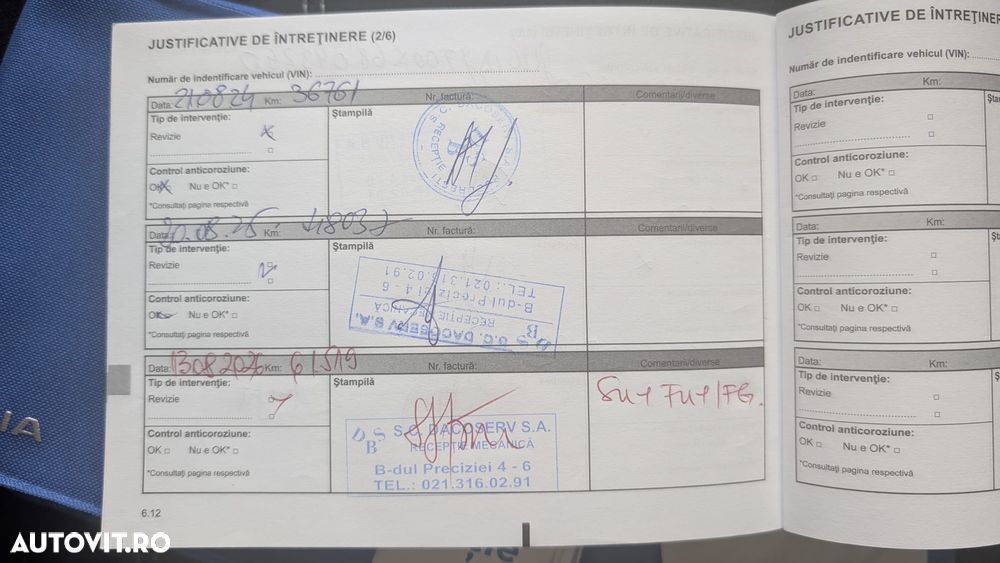 JUSTIFICATIVE DE ÎNTREŢINERE (2/6)
Număr de indentificare vehicul (VIN):
Data: 210824 Km: 36761 Nr. factură: Comentarii/diverse
Tip de intervenţie:
Ştampilă
Revizie
Control anticoroziune:
OK Nu e OK*
*Consultaţi pagina respectivă
Data: 20.08.25 Km: 48037 Nr. factură: Comentarii/diverse
Tip de intervenţie:
Ştampilă
Revizie
Control anticoroziune:
OK Nu e OK*
*Consultaţi pagina respectivă
TEL.: 021.316.02.91
B-dul Preciziei 4 - 6
RECEPTIE MECANICĂ
D S B S.C. DACOSERV S.A.
Data: 13082026 Km: 61519 Nr. factură: Comentarii/diverse
Tip de intervenţie:
Ştampilă
Revizie
Control anticoroziune:
OK Nu e OK*
*Consultaţi pagina respectivă
D S B S.C. DACOSERV S.A.
RECEPŢIE MECANICĂ
B-dul Preciziei 4 - 6
TEL.: 021.316.02.91
6.12
JUSTIFICATIVE DE ÎNTREŢINER
Număr de indentificare vehicul (VIN):
Data: Km:
Tip de intervenţie:
Revizie
Control anticoroziune:
OK Nu e OK*
*Consultaţi pagina respectivă
Data: Km:
Tip de intervenţie:
Revizie
Control anticoroziune:
OK Nu e OK*
*Consultaţi pagina respectivă
Data: Km:
Tip de intervenţie:
Revizie
Control anticoroziune:
OK Nu e OK*
*Consultaţi pagina respectivă
AUTOVIT.RO